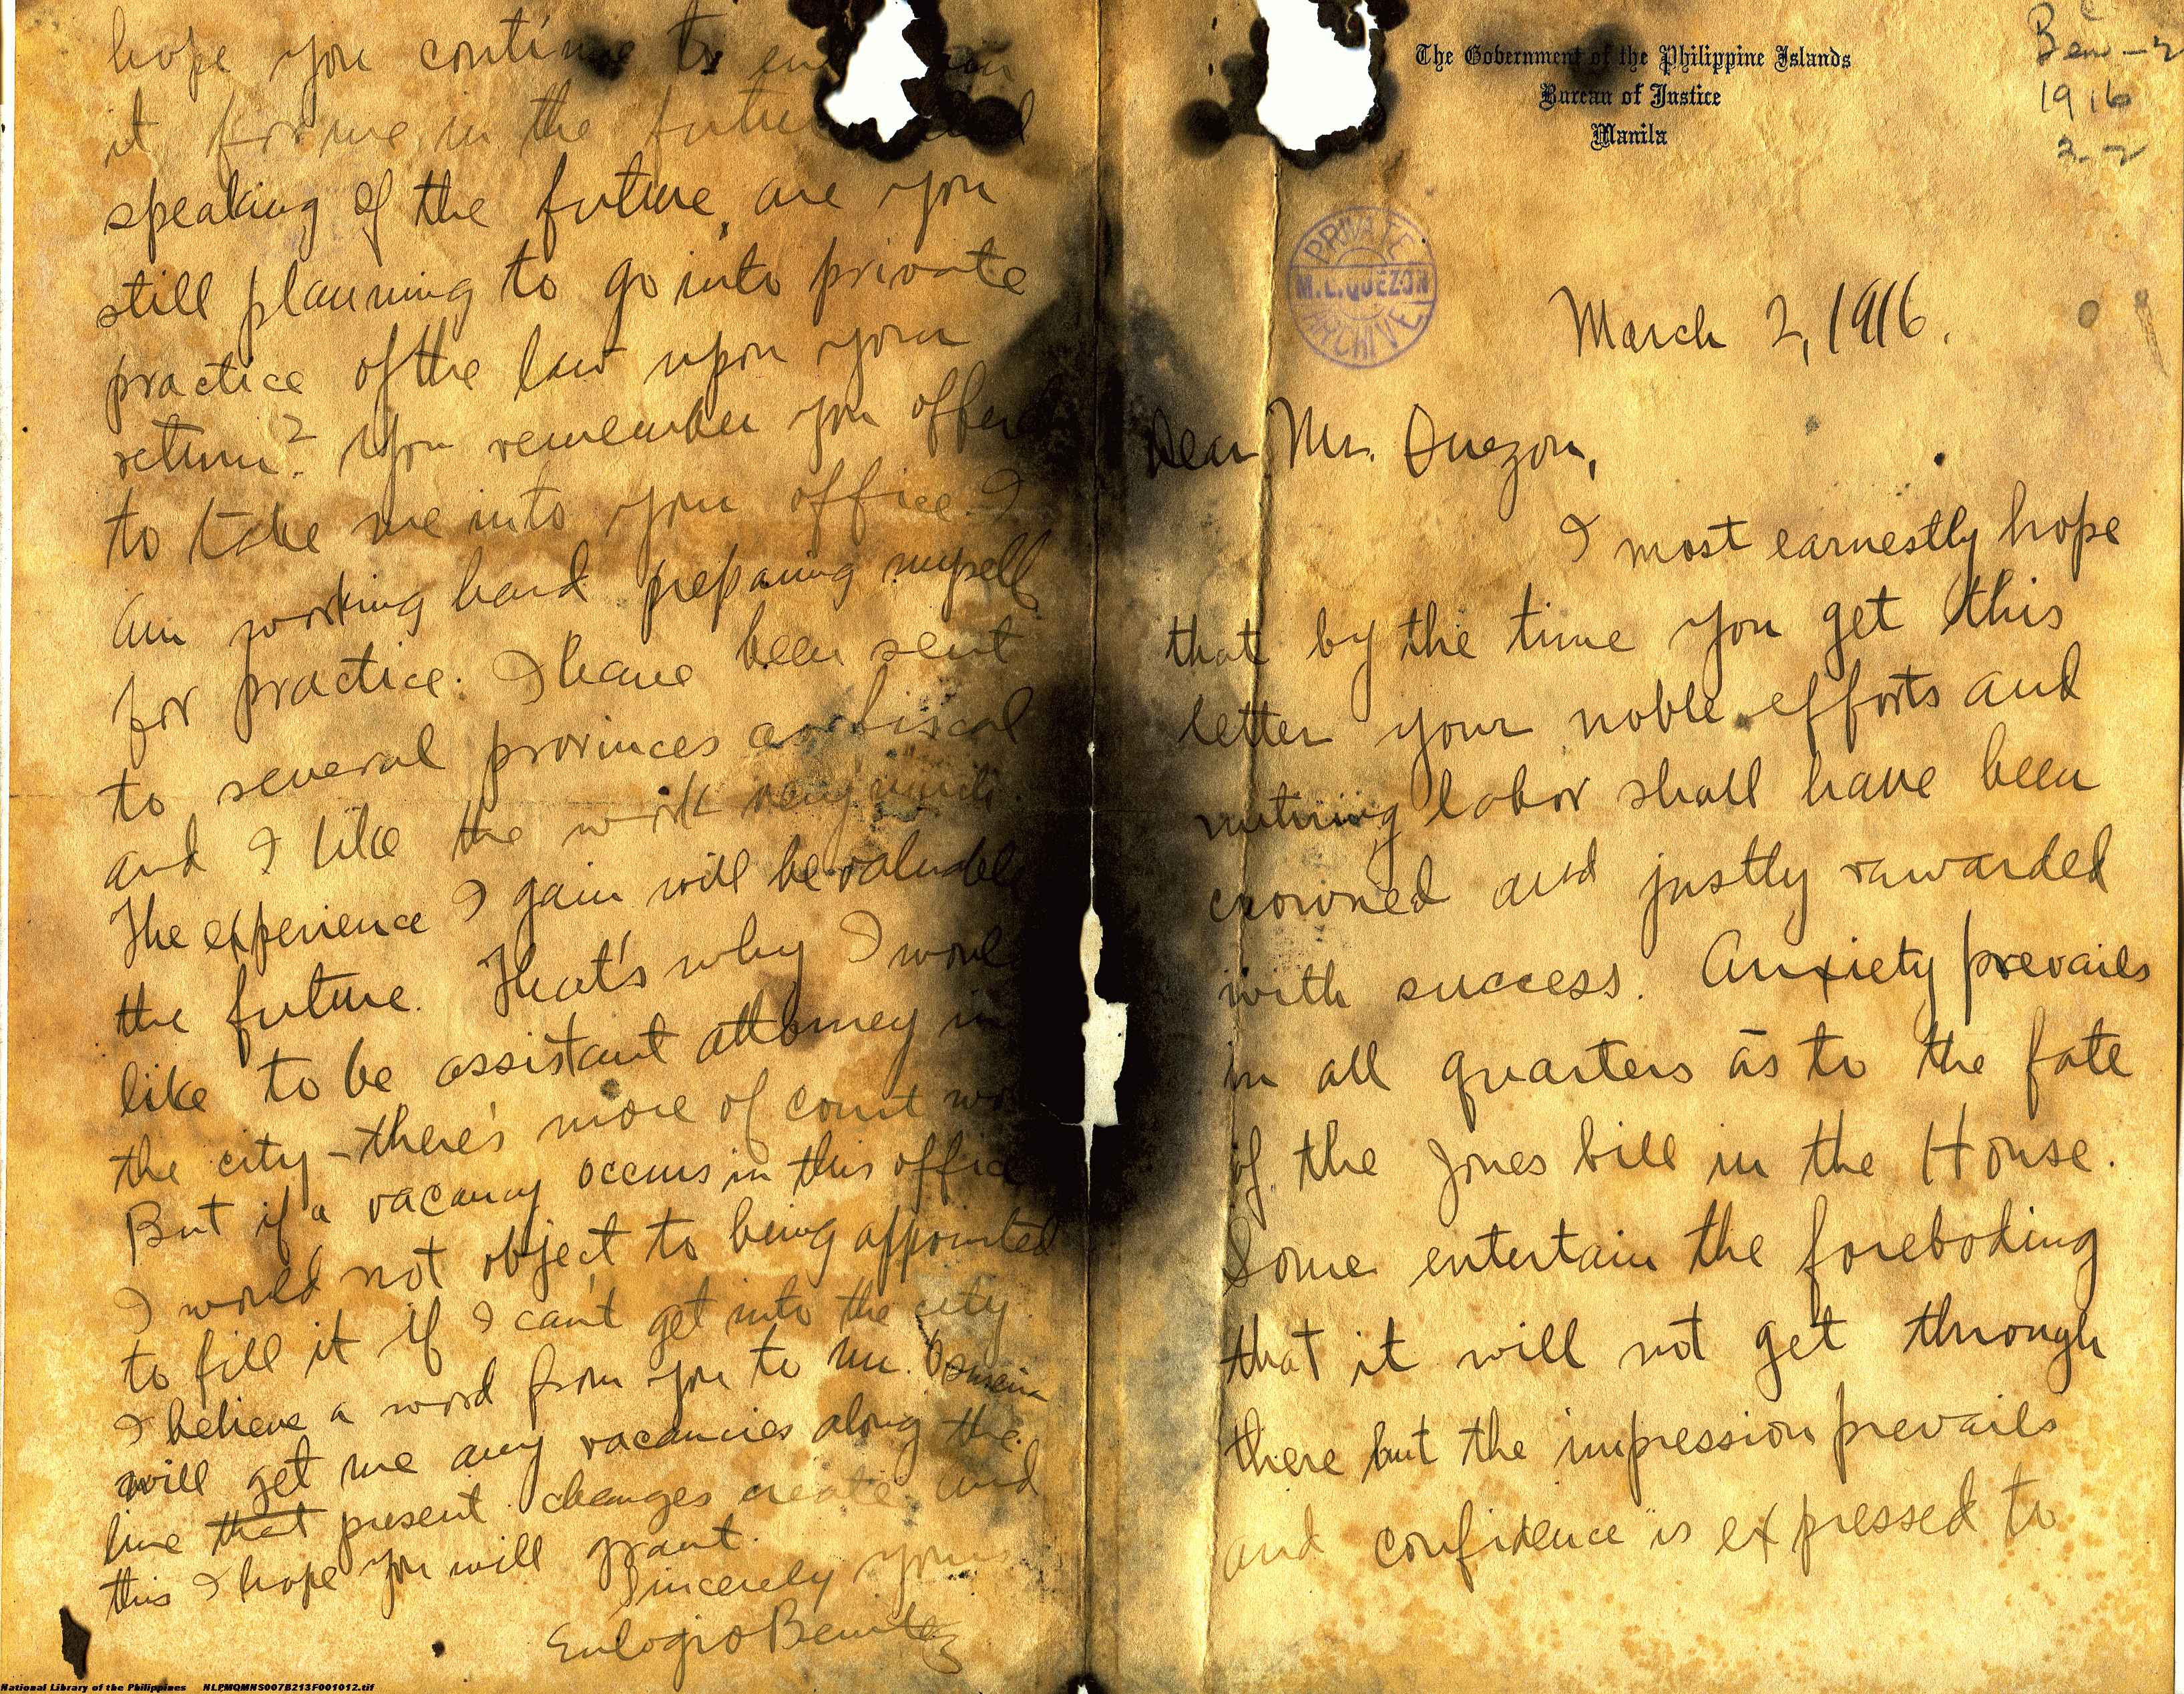 The Government of the Philippine Islands
Bureau of Justice
Manila
1916
2-2
PRIVATE
M.L.QUEZON
ARCHIVE
March 2, 1916.
Dear Mr. Quezon,
I most earnestly hope
that by the time you get this
letter your noble efforts and
untiring labor shall have been
crowned and justly rawarded
with success. Anxiety prevails
in all quarters as to the fate
of the Jones bill in the House.
Some entertain the foreboding
that it will not get through
there but the impression prevails
and confidence is expressed to
hope you continue to
it for me in the
speaking of the future, are you
still planning to go into private
practice of the law upon your
return? You remember you offered
to take me into your office. I
am working hard preparing myself
for practice. I have been sent
to several provinces as fiscal
and I like the work very much.
The experience I gain will be valuable
the future. That's why I would
like to be assistant attorney in
the city - there's more of court
But if a vacancy occurs in this office
I would not object to being appointed
to fill it if I can't get into the city.
I believe a word from you to Mr. Osmeña
will get me any vacancies along the
line that present changes create and
this I hope you will grant.
Sincerely yours
Eulogio Benitez
National Library of the Philippines NLPMQMNS007B213F001012.tif